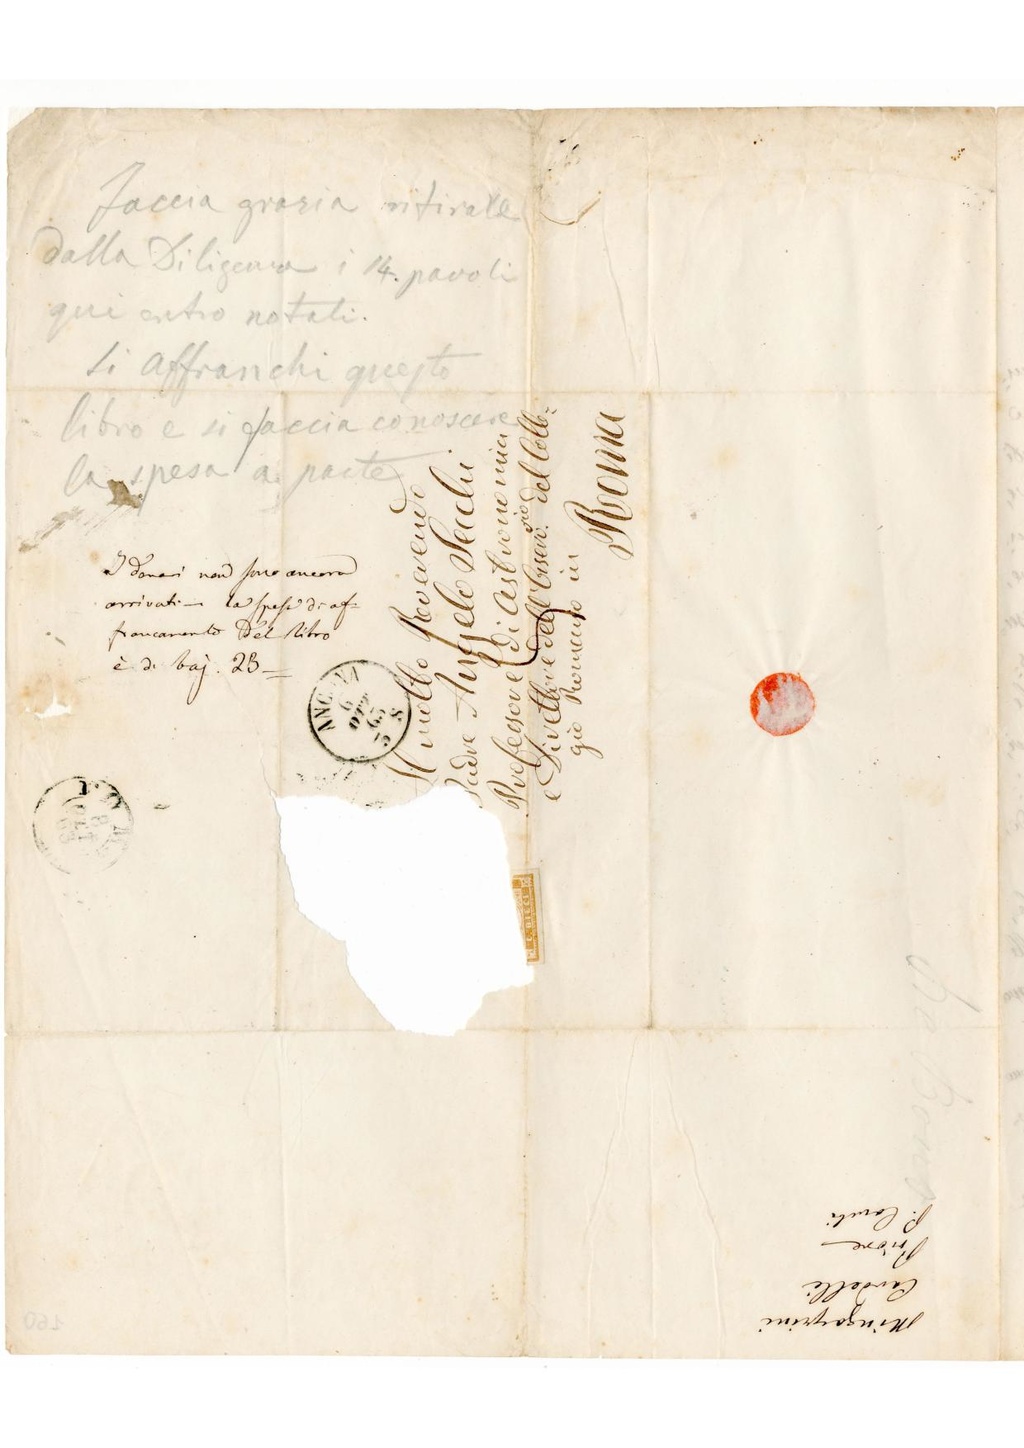 Faccia grazia ritirare
dalla Diligenza i 14. pavoli
qui entro notati.
Si affranchi questo
libro e si faccia conoscere
la spesa a parte
I denari non sono ancora
arrivati – la spesa di af=
francamento del libro
è di baj. 23 –
Al molto Reverendo
Padre Angelo Secchi
Professore di Astronomia
e Direttore dell'Osservrio del Colle=
gio Romano in
Roma
ANCONA
6
OTT
Mingazzini
Cardelli
Priore
160